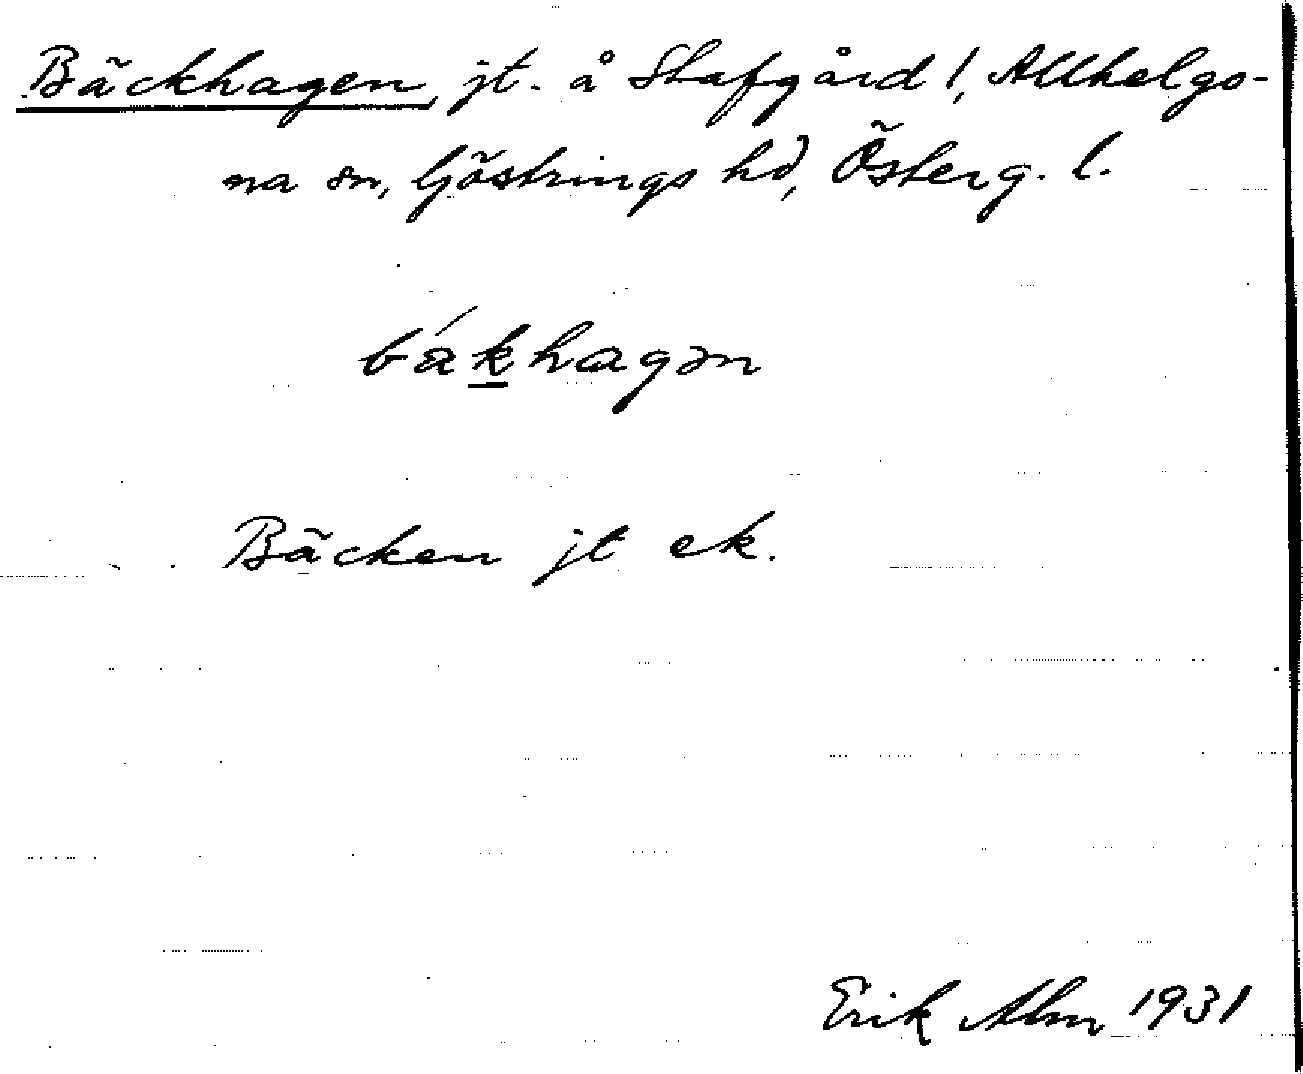 Bäckhagen, jt. å Skafgård 1, Allhelgo-
na sn, Göstrings hd, Österg. l.
bák̲hagən
Bäcken jt ek.
Erik Alm 1931